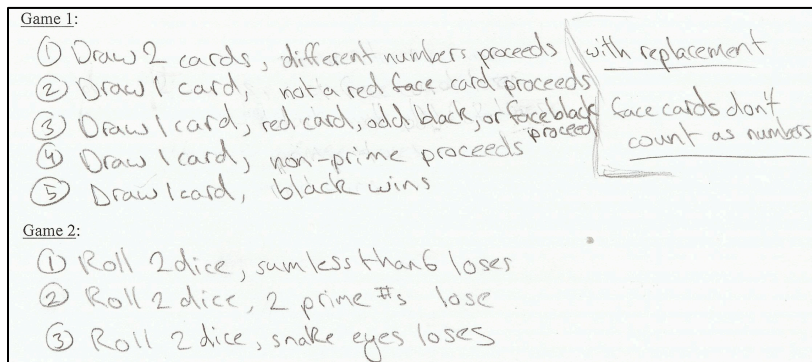 Game 1:
① Draw 2 cards, different numbers proceeds
② Draw 1 card, not a red face card proceeds
③ Draw 1 card, red card, odd black, or face black proceed
④ Draw 1 card, non-prime proceeds
⑤ Draw 1 card, black wins
with replacement
face cards don't
count as numbers
Game 2:
① Roll 2 dice, sum less than 6 loses
② Roll 2 dice, 2 prime #s lose
③ Roll 2 dice, snake eyes loses